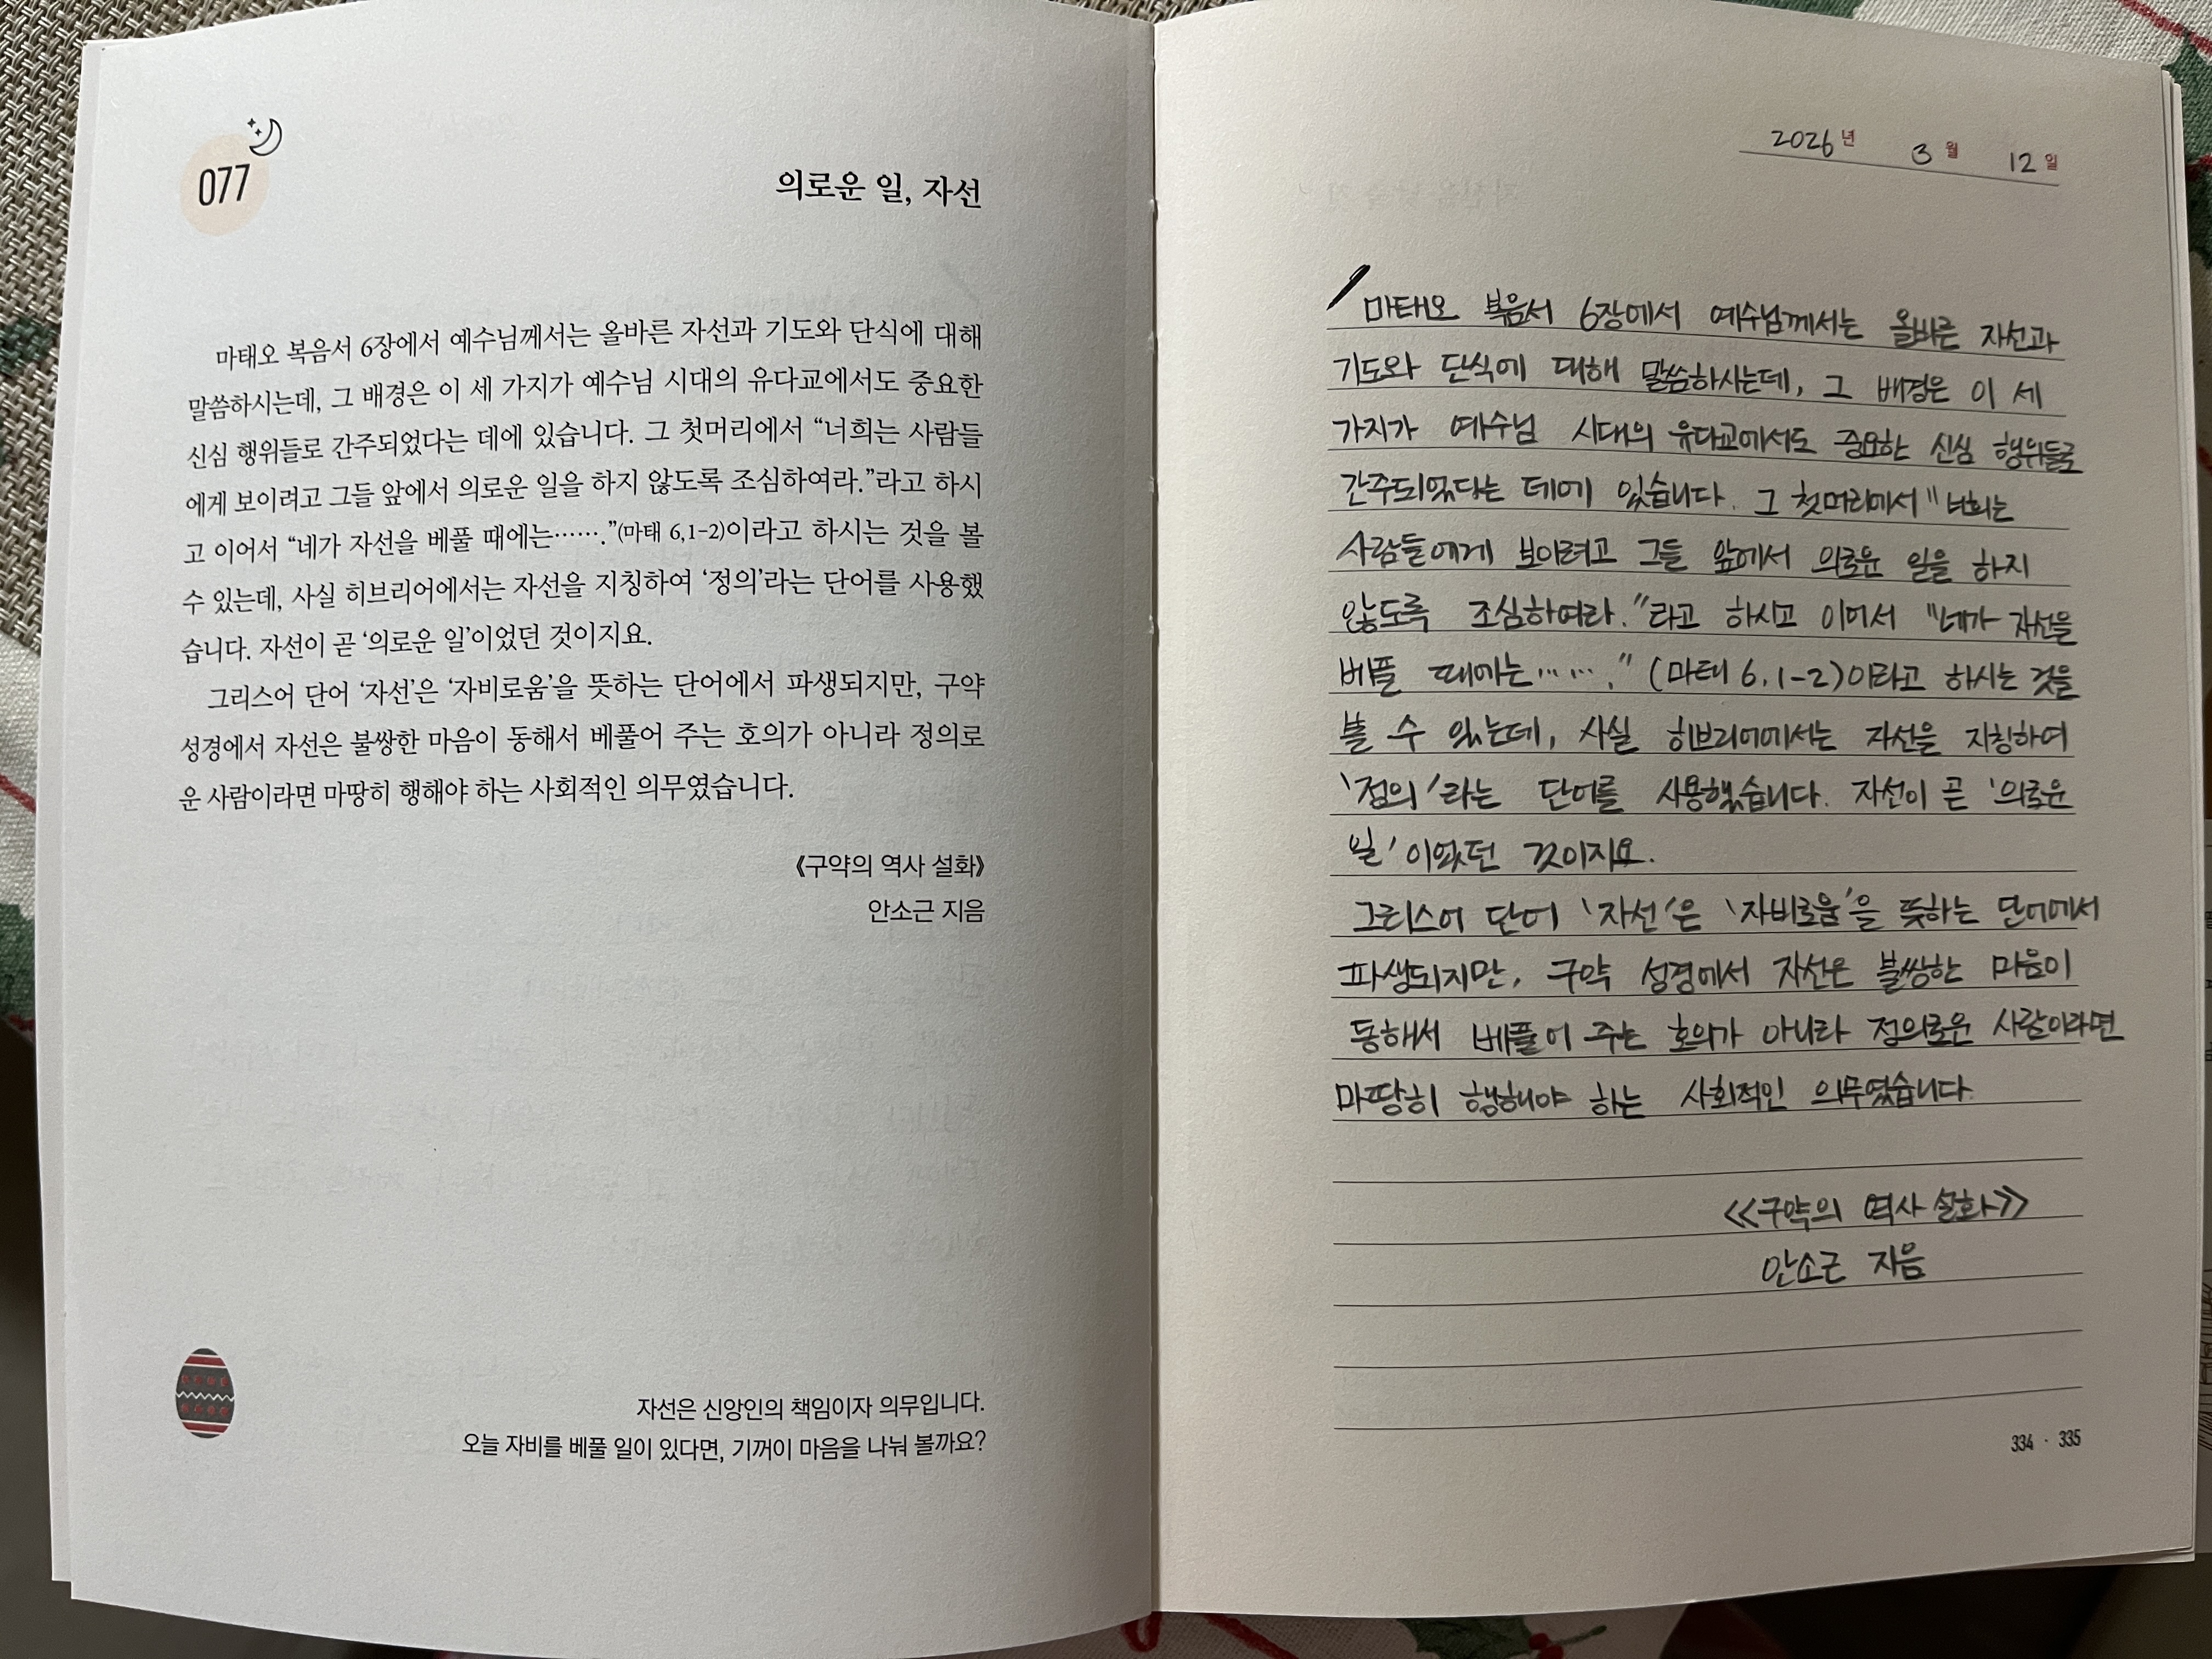 077
의로운 일, 자선
마태오 복음서 6장에서 예수님께서는 올바른 자선과 기도와 단식에 대해
말씀하시는데, 그 배경은 이 세 가지가 예수님 시대의 유다교에서도 중요한
신심 행위들로 간주되었다는 데에 있습니다. 그 첫머리에서 “너희는 사람들
에게 보이려고 그들 앞에서 의로운 일을 하지 않도록 조심하여라.”라고 하시
고 이어서 “네가 자선을 베풀 때에는…….”(마태 6,1-2)이라고 하시는 것을 볼
수 있는데, 사실 히브리어에서는 자선을 지칭하여 ‘정의’라는 단어를 사용했
습니다. 자선이 곧 ‘의로운 일’이었던 것이지요.
그리스어 단어 ‘자선’은 ‘자비로움’을 뜻하는 단어에서 파생되지만, 구약
성경에서 자선은 불쌍한 마음이 동해서 베풀어 주는 호의가 아니라 정의로
운 사람이라면 마땅히 행해야 하는 사회적인 의무였습니다.
《구약의 역사 설화》
안소근 지음
자선은 신앙인의 책임이자 의무입니다.
오늘 자비를 베풀 일이 있다면, 기꺼이 마음을 나눠 볼까요?
2026년 3월 12일
마태오 복음서 6장에서 예수님께서는 올바른 자선과
기도와 단식에 대해 말씀하시는데, 그 배경은 이 세
가지가 예수님 시대의 유다교에서도 중요한 신심 행위들로
간주되었다는 데에 있습니다. 그 첫머리에서 "너희는
사람들에게 보이려고 그들 앞에서 의로운 일을 하지
않도록 조심하여라."라고 하시고 이어서 "네가 자선을
베풀 때에는……." (마태 6,1-2)이라고 하시는 것을
볼 수 있는데, 사실 히브리어에서는 자선을 지칭하여
'정의'라는 단어를 사용했습니다. 자선이 곧 '의로운
일'이었던 것이지요.
그리스어 단어 '자선'은 '자비로움'을 뜻하는 단어에서
파생되지만, 구약 성경에서 자선은 불쌍한 마음이
동해서 베풀어 주는 호의가 아니라 정의로운 사람이라면
마땅히 행해야 하는 사회적인 의무였습니다.
<<구약의 역사 설화>>
안소근 지음
334 · 335